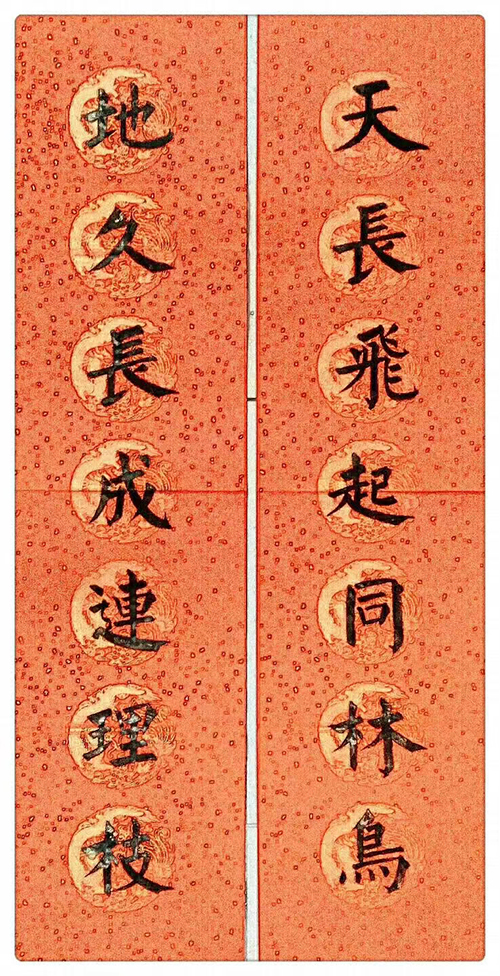 天長飛起同林鳥
地久長成連理枝